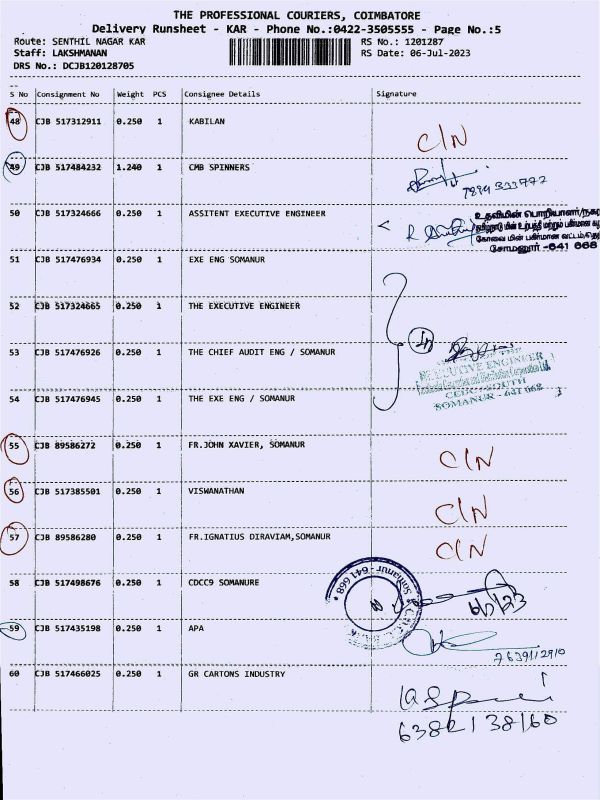 THE PROFESSIONAL COURIERS, COIMBATORE
Delivery Runsheet - KAR - Phone No.:0422-3505555 - Page No.:5
Route: SENTHIL NAGAR KAR
RS No.: 1201287
Staff: LAKSHMANAN
RS Date: 06-Jul-2023
DRS No.: DCJB120128705
S No Consignment No Weight PCS Consignee Details Signature
48 CJB 517312911 0.250 1 KABILAN C/N
49 CJB 517484232 1.240 1 CMB SPINNERS
50 CJB 517324666 0.250 1 ASSITENT EXECUTIVE ENGINEER
உதவிமின் பொறியாளர்/நகர
சோமனூர் -641 668
51 CJB 517476934 0.250 1 EXE ENG SOMANUR
52 CJB 517324665 0.250 1 THE EXECUTIVE ENGINEER
53 CJB 517476926 0.250 1 THE CHIEF AUDIT ENG / SOMANUR
EXECUTIVE ENGINEER
CEDC SOUTH
SOMANUR - 641 668
54 CJB 517476945 0.250 1 THE EXE ENG / SOMANUR
55 CJB 89586272 0.250 1 FR.JOHN XAVIER, SOMANUR C/N
56 CJB 517385501 0.250 1 VISWANATHAN C/N
57 CJB 89586280 0.250 1 FR.IGNATIUS DIRAVIAM,SOMANUR C/N
58 CJB 517498676 0.250 1 CDCC9 SOMANURE
Somanur - 641 668
59 CJB 517435198 0.250 1 APA
7639112910
60 CJB 517466025 0.250 1 GR CARTONS INDUSTRY
6382138160